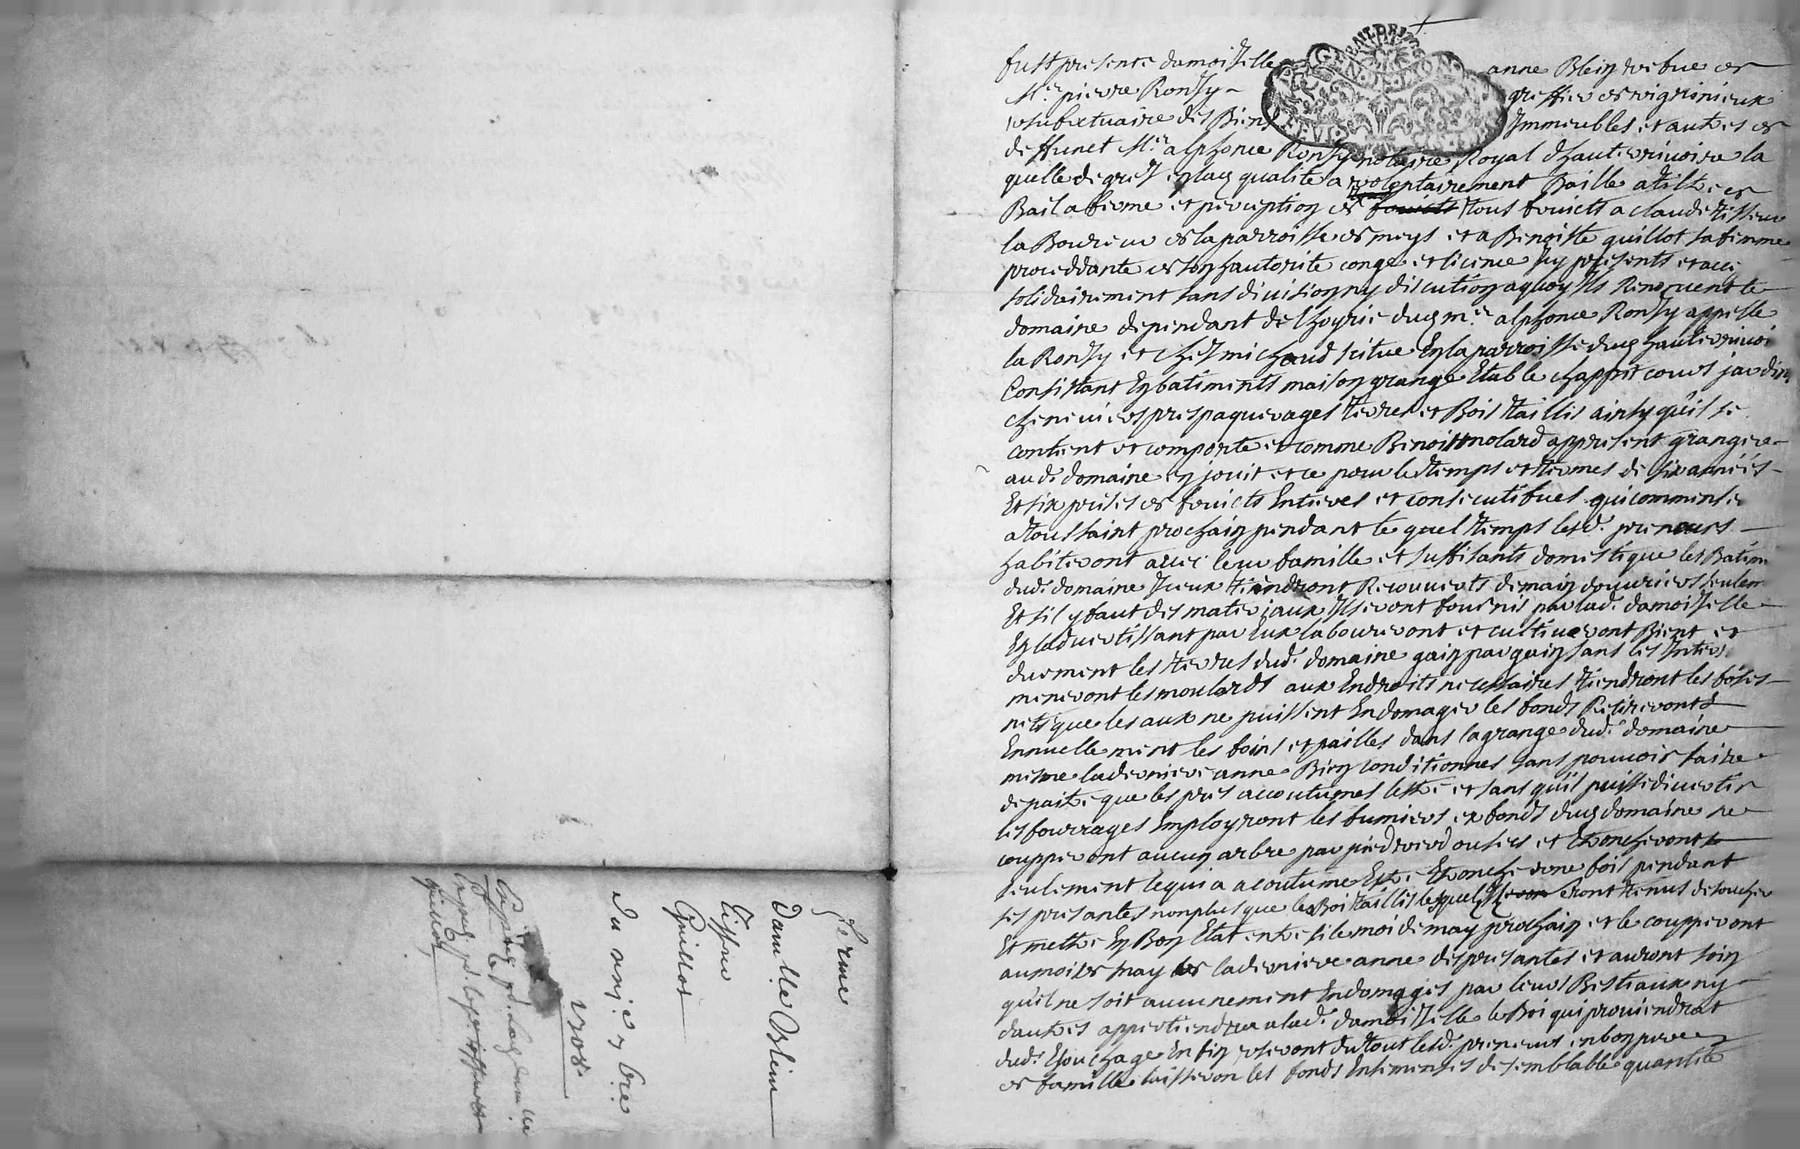 fust presente damoiselle anne Blein vefue de
Mr. pierre Ronzy greffier de vigrinieux
usufructuaire des Biens Immeubles et autres de
deffunct Mr. alphonce Ronzy notaire Royal d'hauterivoire la
quelle de gres en lad. qualité a volontairement Baille a tiltre de
Bail a ferme et perception de fruicts tous fruicts a claude tisseur
laboureur de la parroisse de meys et a Benoiste guillot sa femme
proceddante de son hautorite conge et licence Icy presents et acc.
solidairement sans division ny discution a quoy Ils Renoncent le
domaine dependant de l'hoyrie dud. mr. alphonce Ronzy appelle
la Ronzy et chez michaud scitue En la parroisse dud. hauterivoi
Consistant En batiments maison grange Etable chappit cours jardin
cheneviers pres paquerages terres et Bois taillis ainsy qu'il se
contient et comporte et comme Benoist molard appresent granger
aud. domaine en jouit et ce pour le temps et termes de six années
Et six prises de fruicts Entieres et consecutifues qui commense
a toussaint prochain pendant le quel temps lesd. preneurs
habiteront avec leur famille et suffisants domestique les Batim
dud. domaine Iceux tiendront Recouverts de main douvriers seulem
Et s'il y faut des materiaux Ils seront fournis par lad. damoiselle
En l'advertissant par Eux laboureront et cultiveront Bient et
duement les terres dud. domaine gain par gain sans les Inters
meneront les moulards aux Endroits necessaires tiendront les foses
nets que les aux ne puissent Endomager les fonds Retireront
Ennuellement les foins et pailles dans la grange dud. domaine
mesme la derniere anne Bien conditionnes sans pouvoir faire
depaitre que les pres accoutumes lestre et sans qu'il puisse divertir
les fourrages Employront les fumiers ex fonds dud. domaine ne
coupperont aucun arbre par pied verd ou sec et Etroncheront
seulement le qui a acoutume Estre Etronche une fois pendant
ses presantes nonplus que le Bois taillis lesquel seront tenus de soucher
Et mettre En Bon Etat entre si le moi de may prochain et le coupperont
au mois de may de la derniere anne des presantes et auront soin
qu'il ne soit aucunement Endomages par leurs Bestiaux ny
d'autres appertiendra a lad. damoiselle le Boi qui proviendrat
dud. Esouchage Enfin useront du tout lesd. preneurs en bon pere
de famille laisseron les fonds Ensemenses de semblable quantité
ferme
damlle Oblein
tisseur
Guillot
du
1708
guillot